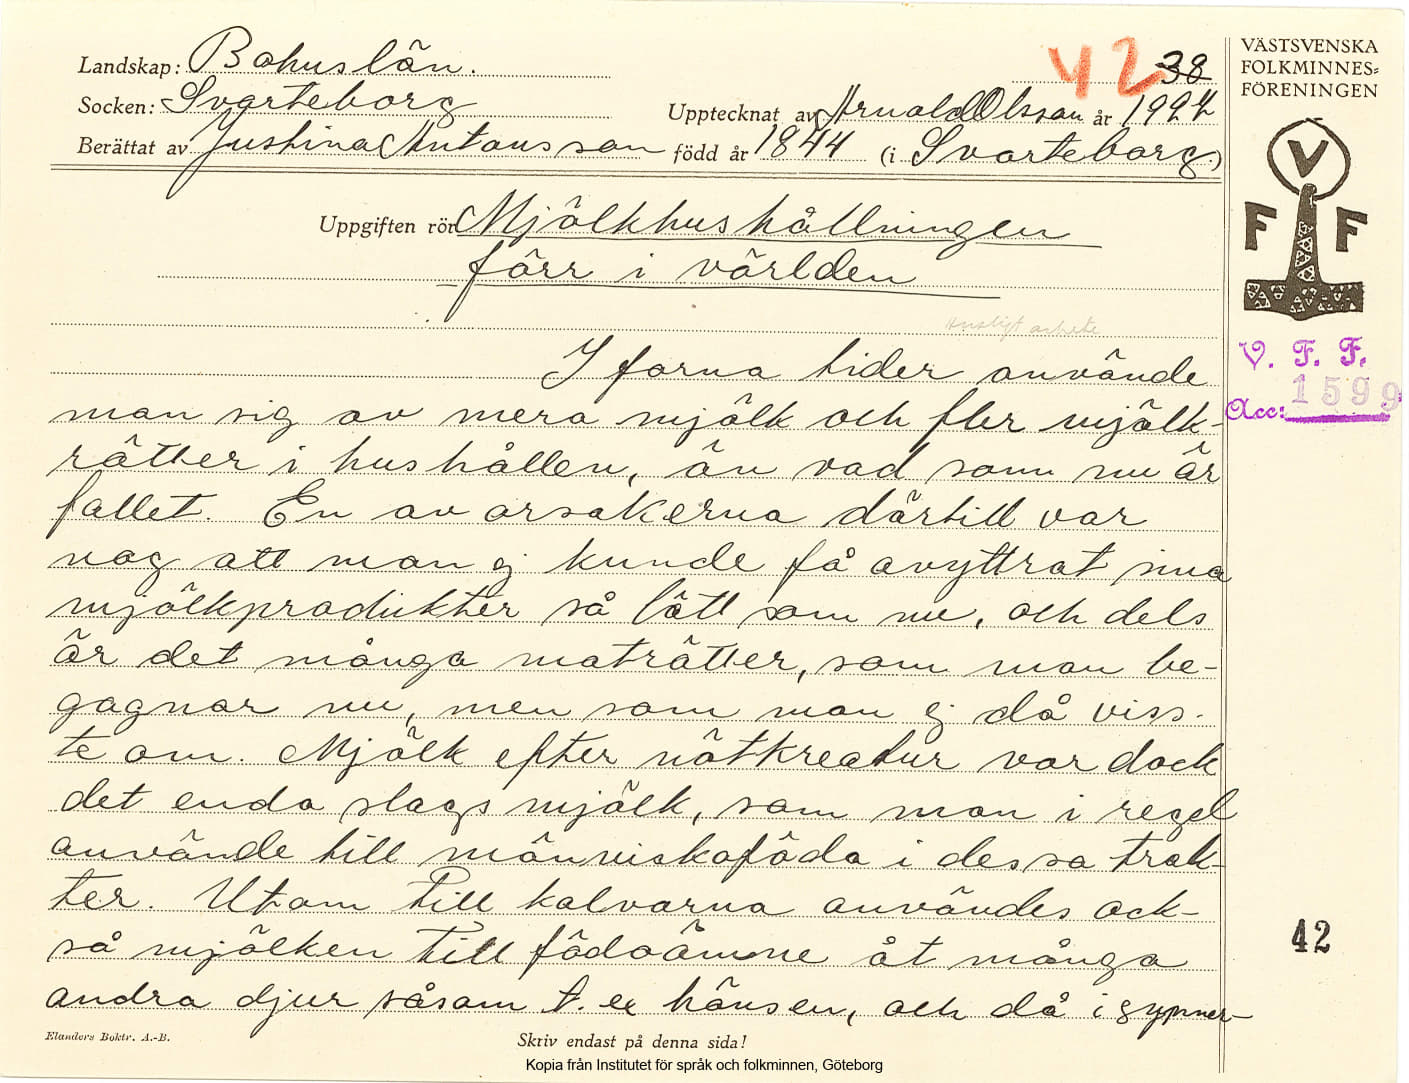 Landskap: Bohuslän.
Socken: Svarteborg
Berättat av Justina Antonsson
42 38
Upptecknat av Arnold Olsson år 1927
född år 1844 (i Svarteborg)
VÄSTSVENSKA
FOLKMINNES-
FÖRENINGEN
V
F F
Uppgiften rör Mjölkhushållningen
förr i världen
Husligt arbete
V. F. F.
Acc: 1599
I forna tider använde
man sig av mera mjölk och fler mjölk-
rätter i hushållen, än vad som nu är
fallet. En av orsakerna därtill var
nog att man ej kunde få avyttrat sina
mjölkprodukter så lätt som nu, och dels
är det många maträtter, som man be-
gagnar nu, men som man ej då viss-
te om. Mjölk efter nötkreatur var dock
det enda slags mjölk, som man i regel
använde till människoföda i dessa trak-
ter. Utom till kalvarna användes ock-
så mjölken till födoämne åt många
andra djur såsom t. ex hönsen, och då i synner-
42
Elanders Boktr. A.-B.
Skriv endast på denna sida!
Kopia från Institutet för språk och folkminnen, Göteborg